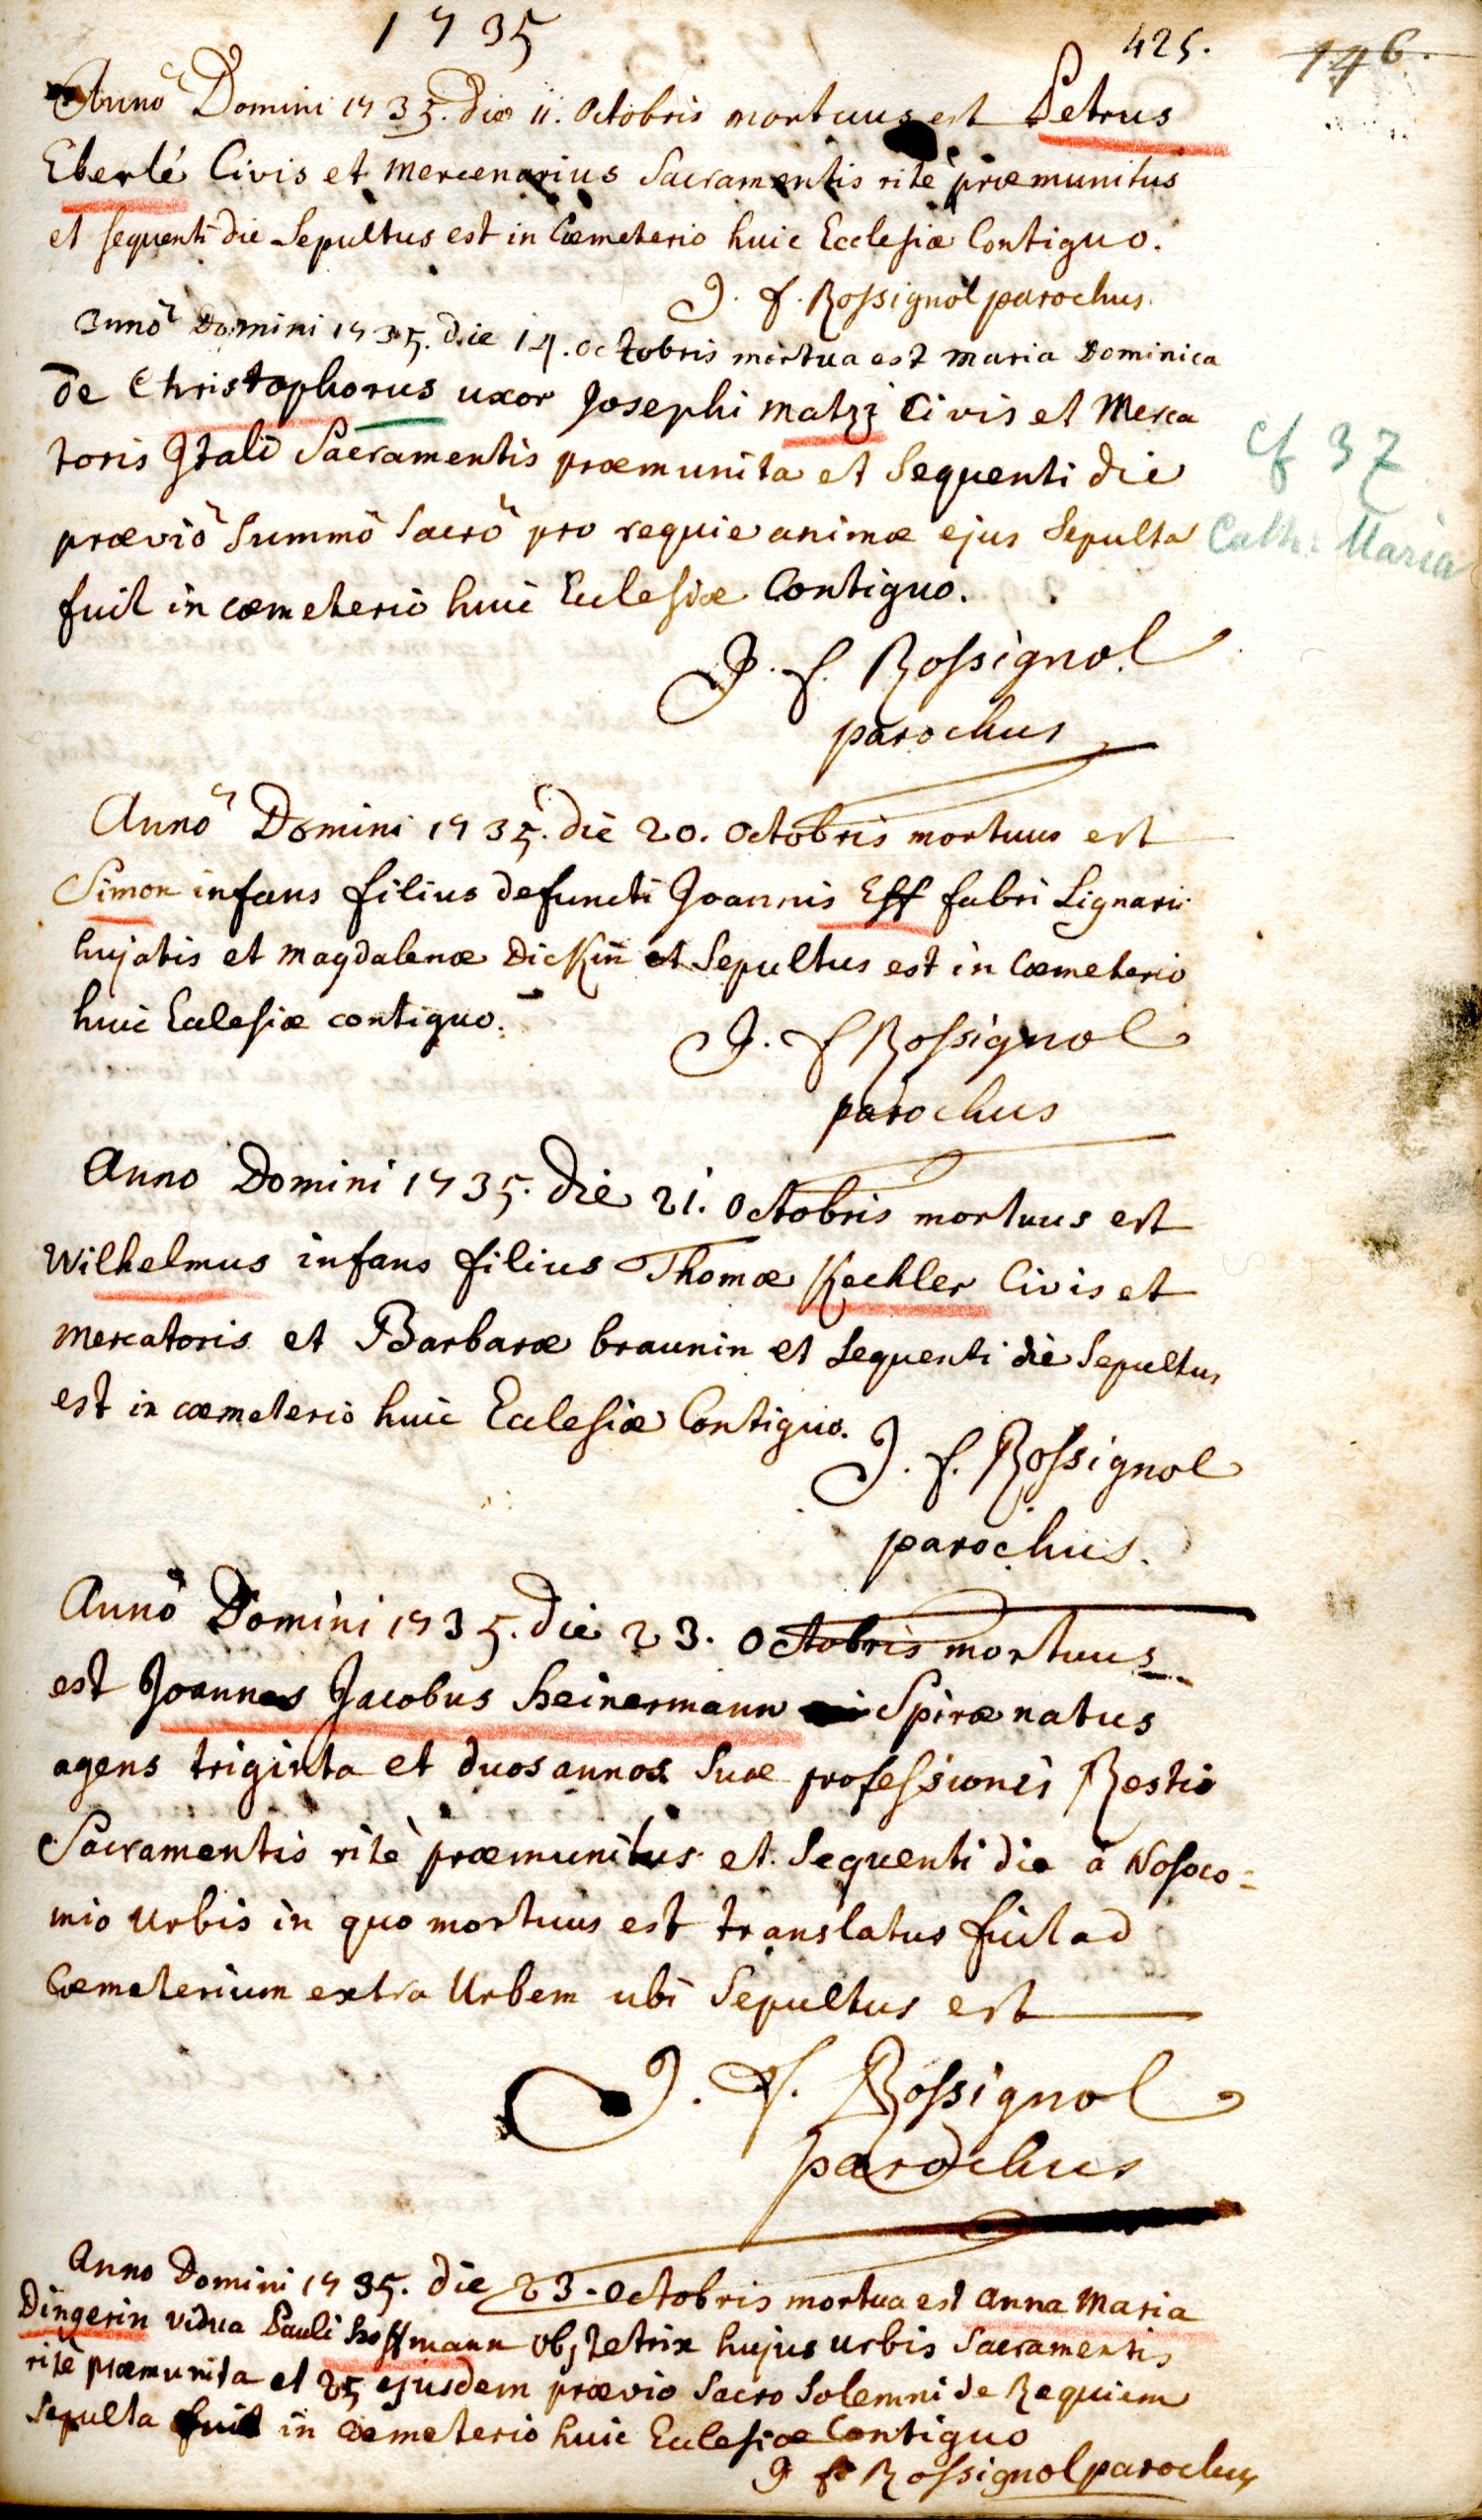 1735
425.
146.
Annô Domini 1735. die 11. Octobris mortuus est Petrus
Eberlé Civis et mercenarius Sacramentis ritè præmunitus
et sequenti die Sepultus est in Cœmeterio huic Ecclesiæ Contiguo.
J. f. Rossignol parochus.
Annô Domini 1735. die 14. octobris mortua est maria Dominica
de Christophorus uxor Josephi matzi Civis et Merca
toris Itali Sacramentis præmunita et Sequenti die
præviô Summô Sacrô pro requie animæ ejus Sepulta
fuit in cœmeterio huic Ecclesiæ Contiguo.
cf 37
Cath: Maria
J. f. Rossignol
parochus
Annô Domini 1735. die 20. Octobris mortuus est
Simon infans filius defuncti Joannis Eff fabri Lignarii
hujatis et magdalenæ Dickin et Sepultus est in Cœmeterio
huic Ecclesiæ contiguo.
J. f Rossignol
parochus
Anno Domini 1735. die 21. Octobris mortuus est
Wilhelmus infans filius Thomæ Kechler Civis et
mercatoris et Barbaræ braunin et Sequenti die Sepultus
est in cœmeterio huic Ecclesiæ Contiguo.
J. f. Rossignol
parochus.
Annô Domini 1735. die 23. Octobris mortuus
est Joannes Jacobus heinermann Spiræ natus
agens triginta et duos annos Suæ professionis Restio
Sacramentis ritè præmunitus et Sequenti die à Nosoco=
mio urbis in quo mortuus est translatus fuit ad
Cœmeterium extra Urbem ubi Sepultus est
J. f. Rossignol
parochus
Anno Domini 1735. die 23. Octobris mortua est anna Maria
Dingerin vidua Pauli hoffmann obstetrix hujus urbis Sacramentis
ritè præmunita et 25 ejusdem prævio Sacro Solemni de Requiem
Sepulta fuit in Cœmeterio huic Ecclesiæ Contiguo
J f Rossignol parochus